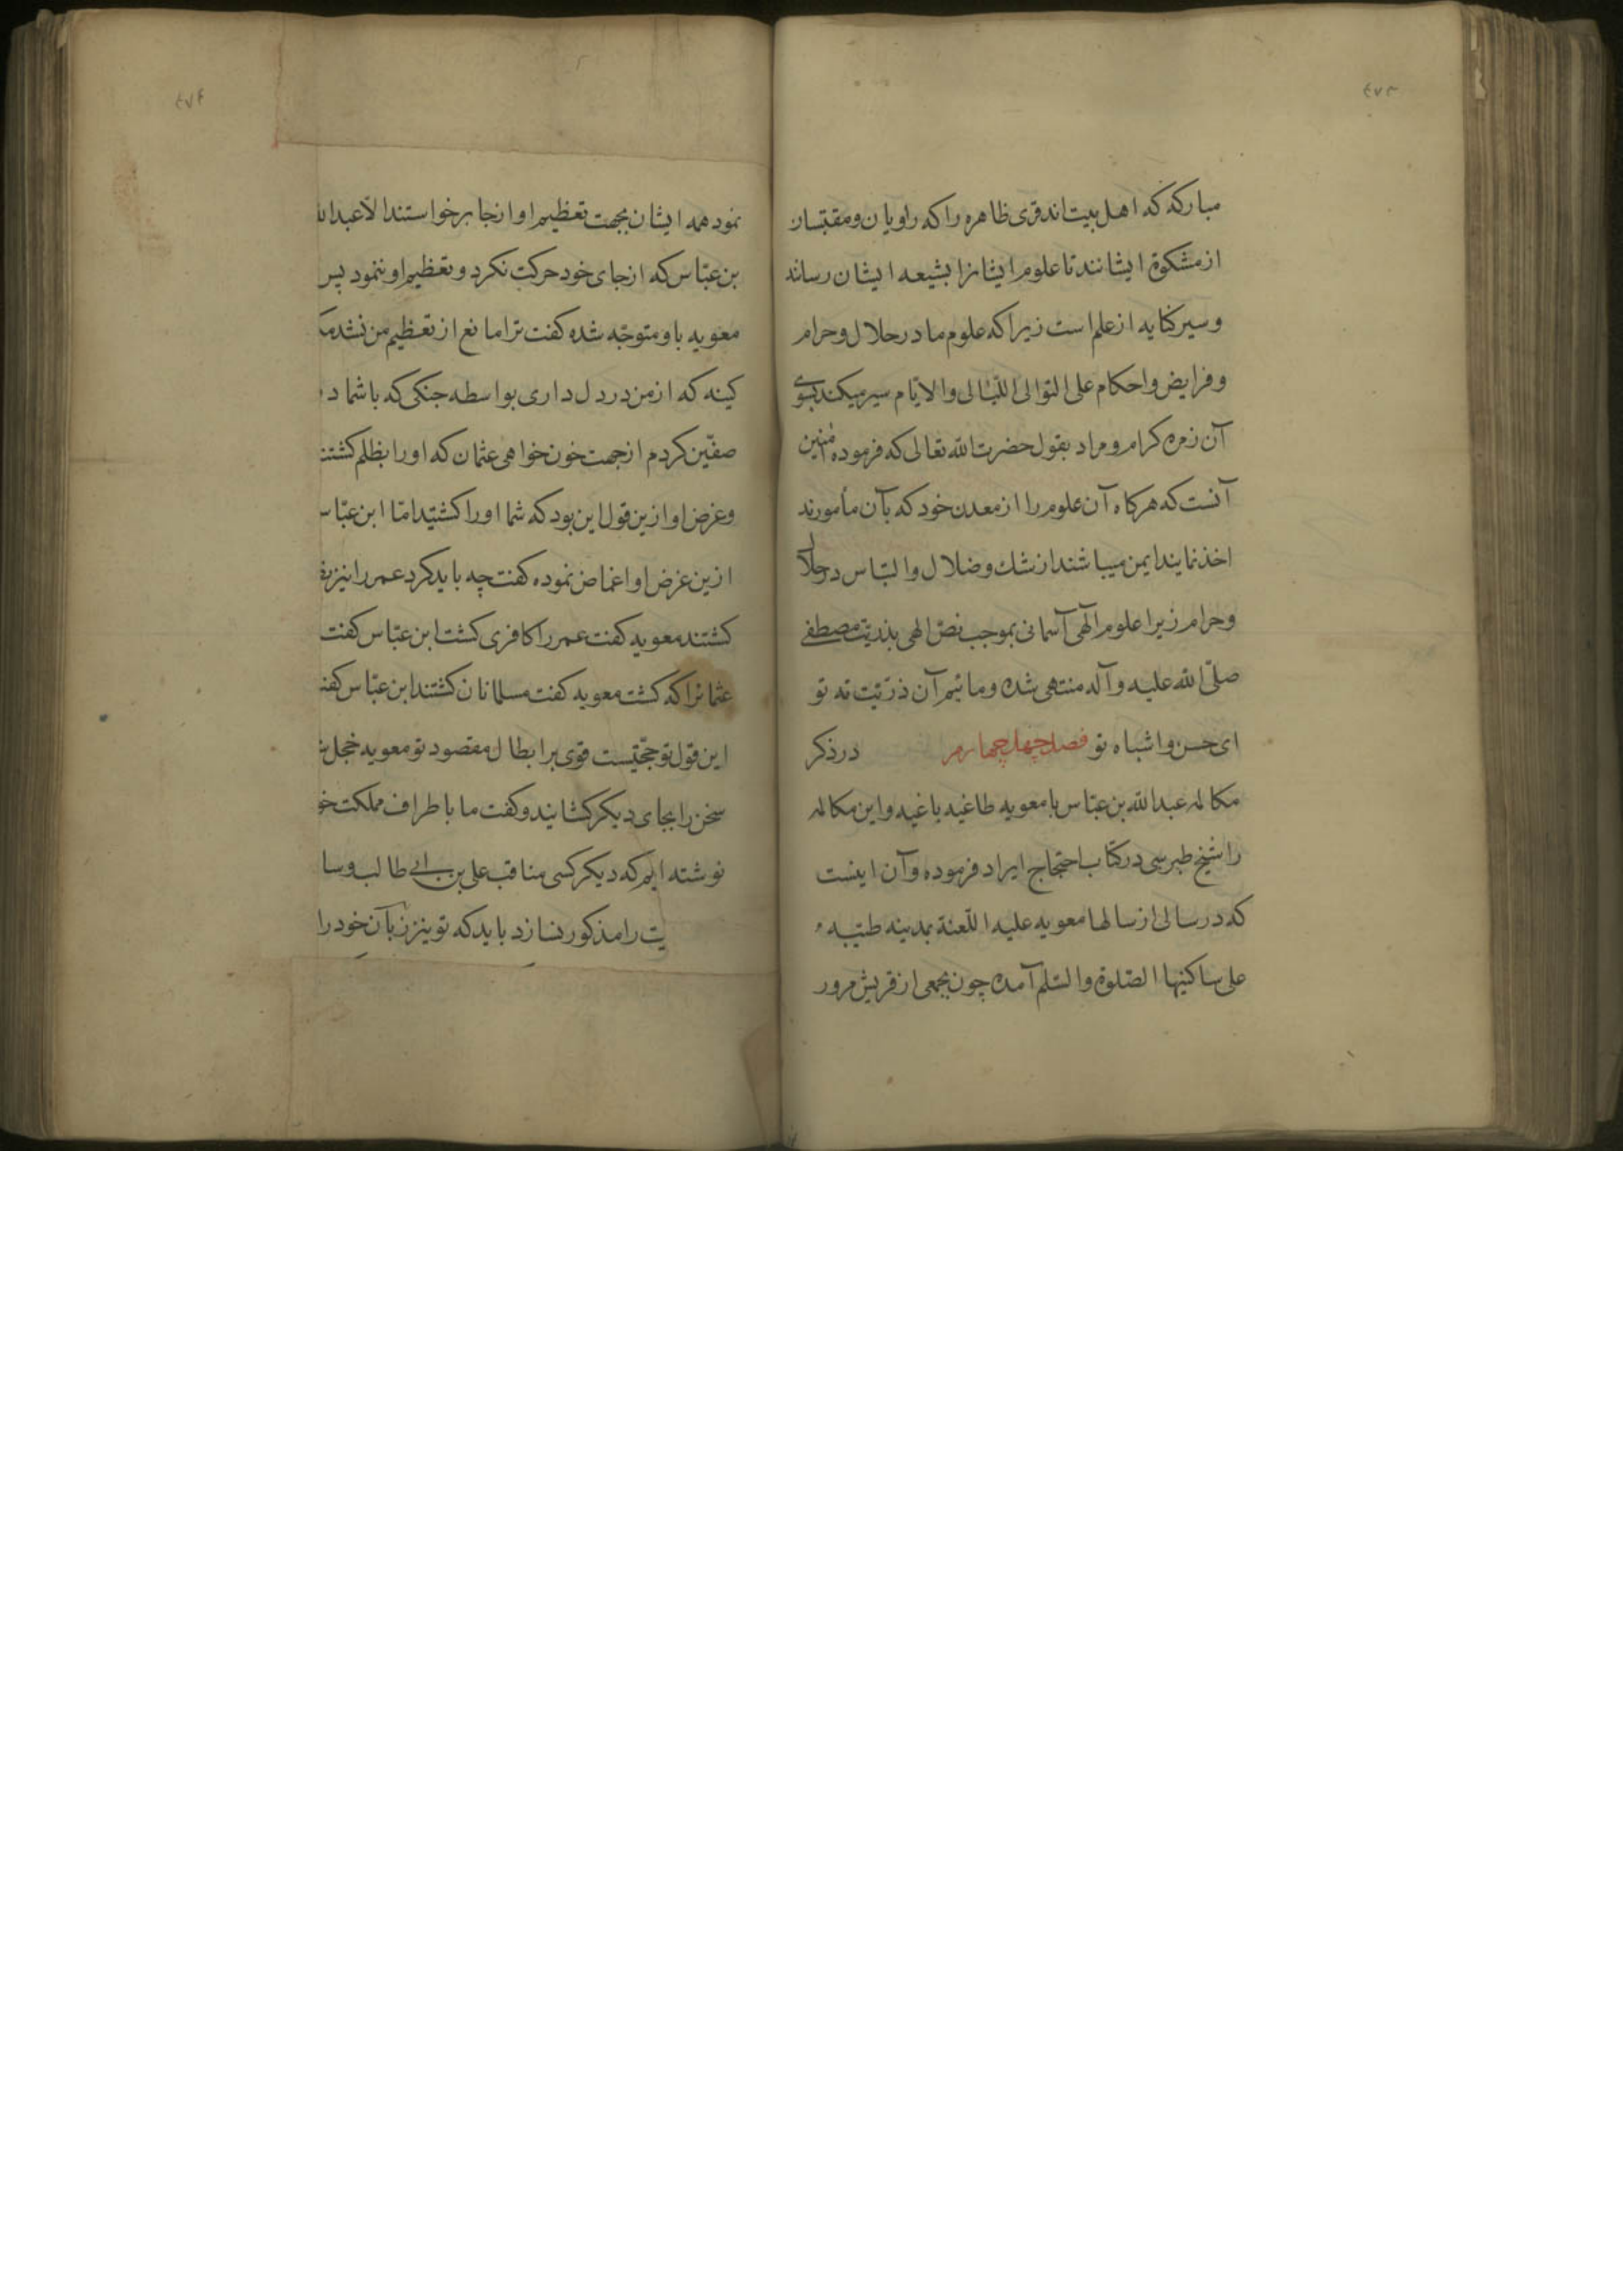 ٤٧٣
مباركه كه اهل بیت‌اند قری ظاهره را كه راویان و مقتبسان
از مشكوة ایشانند تا علوم ایشانرا بشیعه ایشان رسانند
و سیر كنایه از علم است زیرا كه علوم ما در حلال و حرام
و فرایض و احكام علی التوالی اللّیالی والایّام سیر میكند بسوی
آن زمره كرام و مراد بقول حضرت الله تعالی كه فرموده امنین
آنست كه هركاه آن علوم را از معدن خود كه بآن مأمورند
اخذ نمایند ایمن میباشند از شك و ضلال و التباس در حلال
و حرام زیرا علوم الهی آسمانی بموجب نصّ الهی بذریّت مصطفی
صلّی الله علیه و آله منتهی شده و مائیم آن ذرّیّت نه تو
ای حسن و اشباه تو فصل چهل چهارم در ذكر
مكالمه عبدالله بن عبّاس با معویه طاغیه باغیه و این مكالمه
را شیخ طبرسی در كتاب احتجاج ایراد فرموده و آن اینست
كه در سالی از سالها معویه علیه اللّعنة بمدینه طیّبه
علی ساكنیها الصّلوة والسّلم آمده چون بجمعی از قریش مرور
٤٧٤
نمود همه ایشان بجهت تعظیم او از نجا برخواستند الّا عبدالله
بن عبّاس كه از جای خود حركت نكرد و تعظیم او ننمود پس
معویه باو متوجّه شده كفت ترا مانع از تعظیم من نشد مكر
كینه كه از من در دل داری بواسطه جنكی كه با شما در
صفّین كردم از جهت خون خواهی عثمان كه او را بظلم كشتند
و غرض او ازین قول این بود كه شما او را كشتید امّا ابن عبّاس
ازین غرض او اغماض نموده كفت چه باید كرد عمر را نیز
كشتند معویه كفت عمر را كافری كشت ابن عبّاس كفت
عثمانرا كه كشت معویه كفت مسلمانان كشتند ابن عبّاس كفت
این قول تو حجّتیست قوی بر ابطال مقصود تو معویه خجل شده
سخن را بجای دیكر كشانید و كفت ما باطراف مملكت خود
نوشته ایم كه دیكر كسی مناقب علی بن ابی طالب و سا
یت را مذكور نسازد باید كه تو نیز زبان خود را